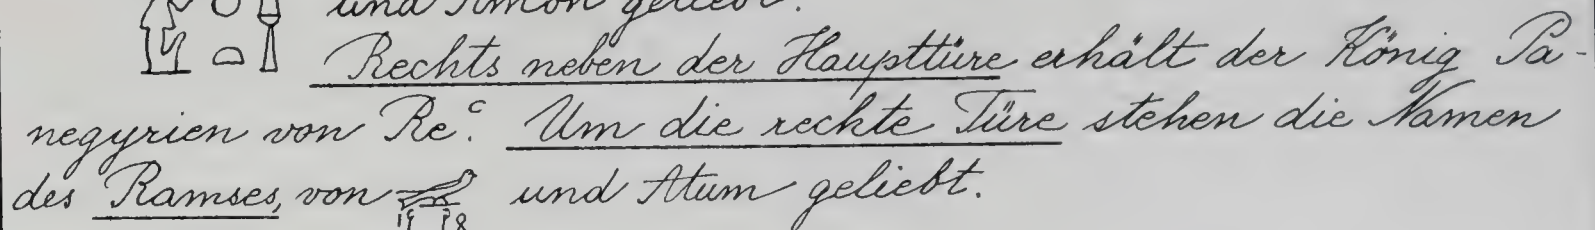 und Amon geliebt.
Rechts neben der Haupttüre erhält der König Pa-
negyrien von Reᶜ. Um die rechte Türe stehen die Namen
des Ramses, von und Atum geliebt.